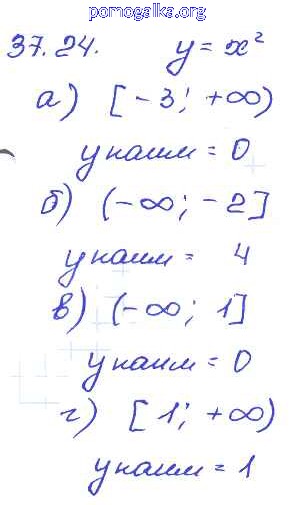 pomogalka.org
37.24. y = x²
а) [-3; +∞)
y наим = 0
б) (-∞; -2]
y наим = 4
в) (-∞; 1]
y наим = 0
г) [1; +∞)
y наим = 1